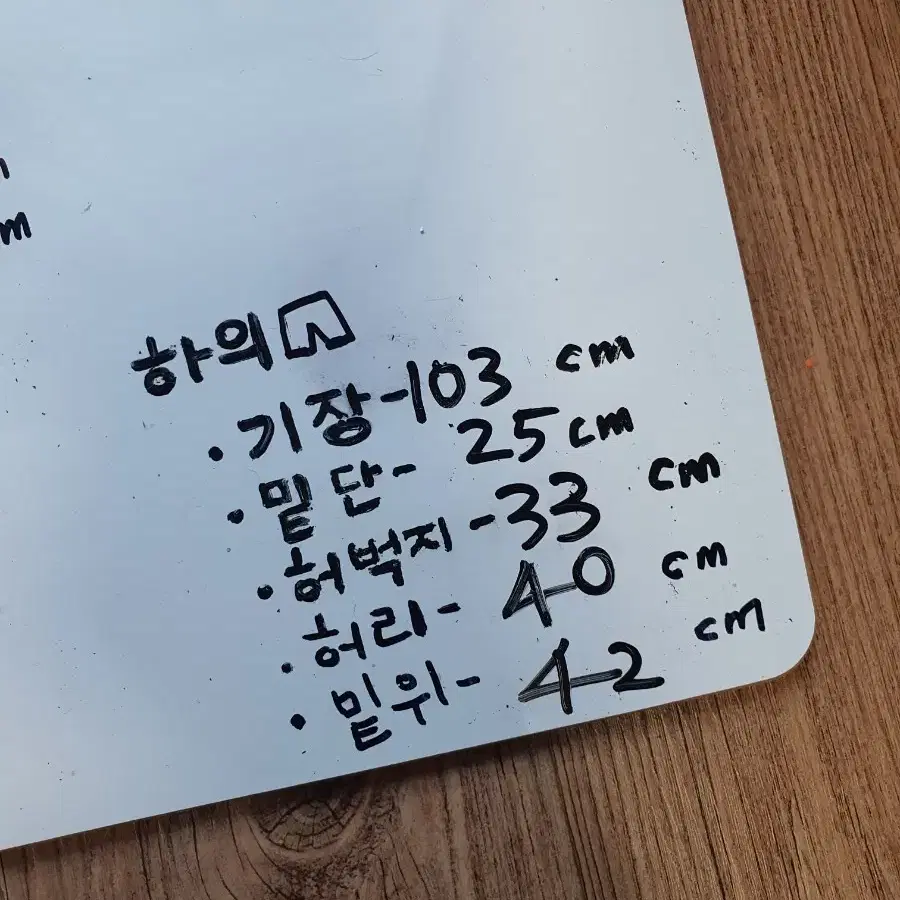 m
cm
하의
· 기장-103 cm
· 밑단- 25 cm
· 허벅지-33 cm
· 허리- 40 cm
· 밑위- 42 cm